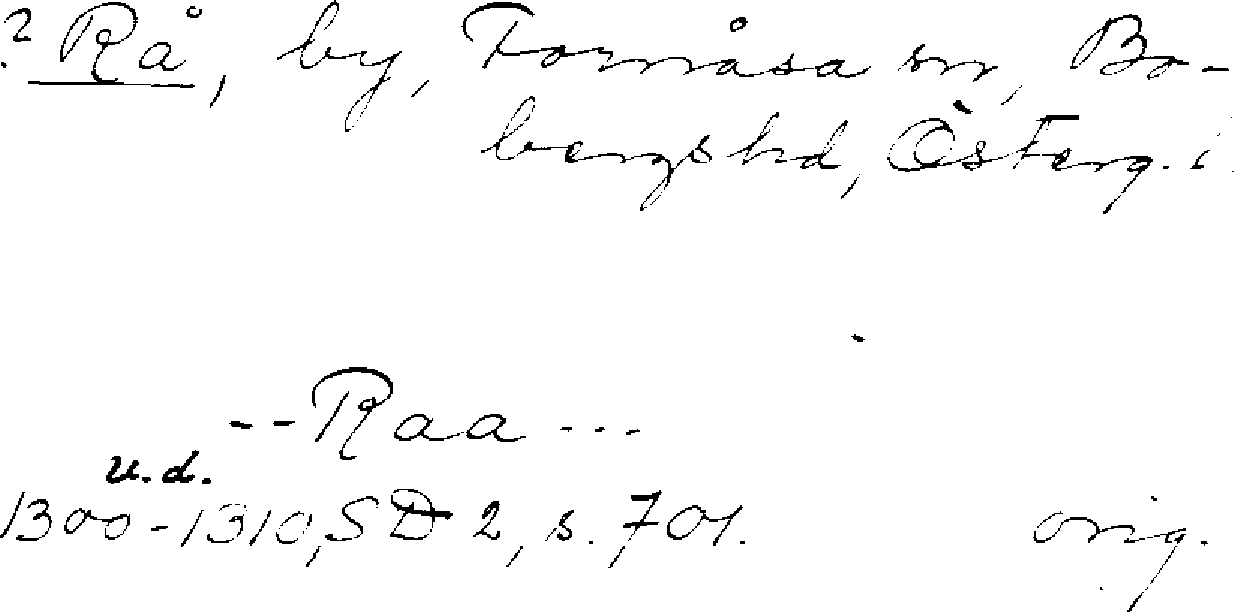 ? Rå, by, Fornåsa sn, Bo-
bergs hd, Österg. l.
--Raa---
u.d.
1300-1310, SD 2, s. 701. orig.